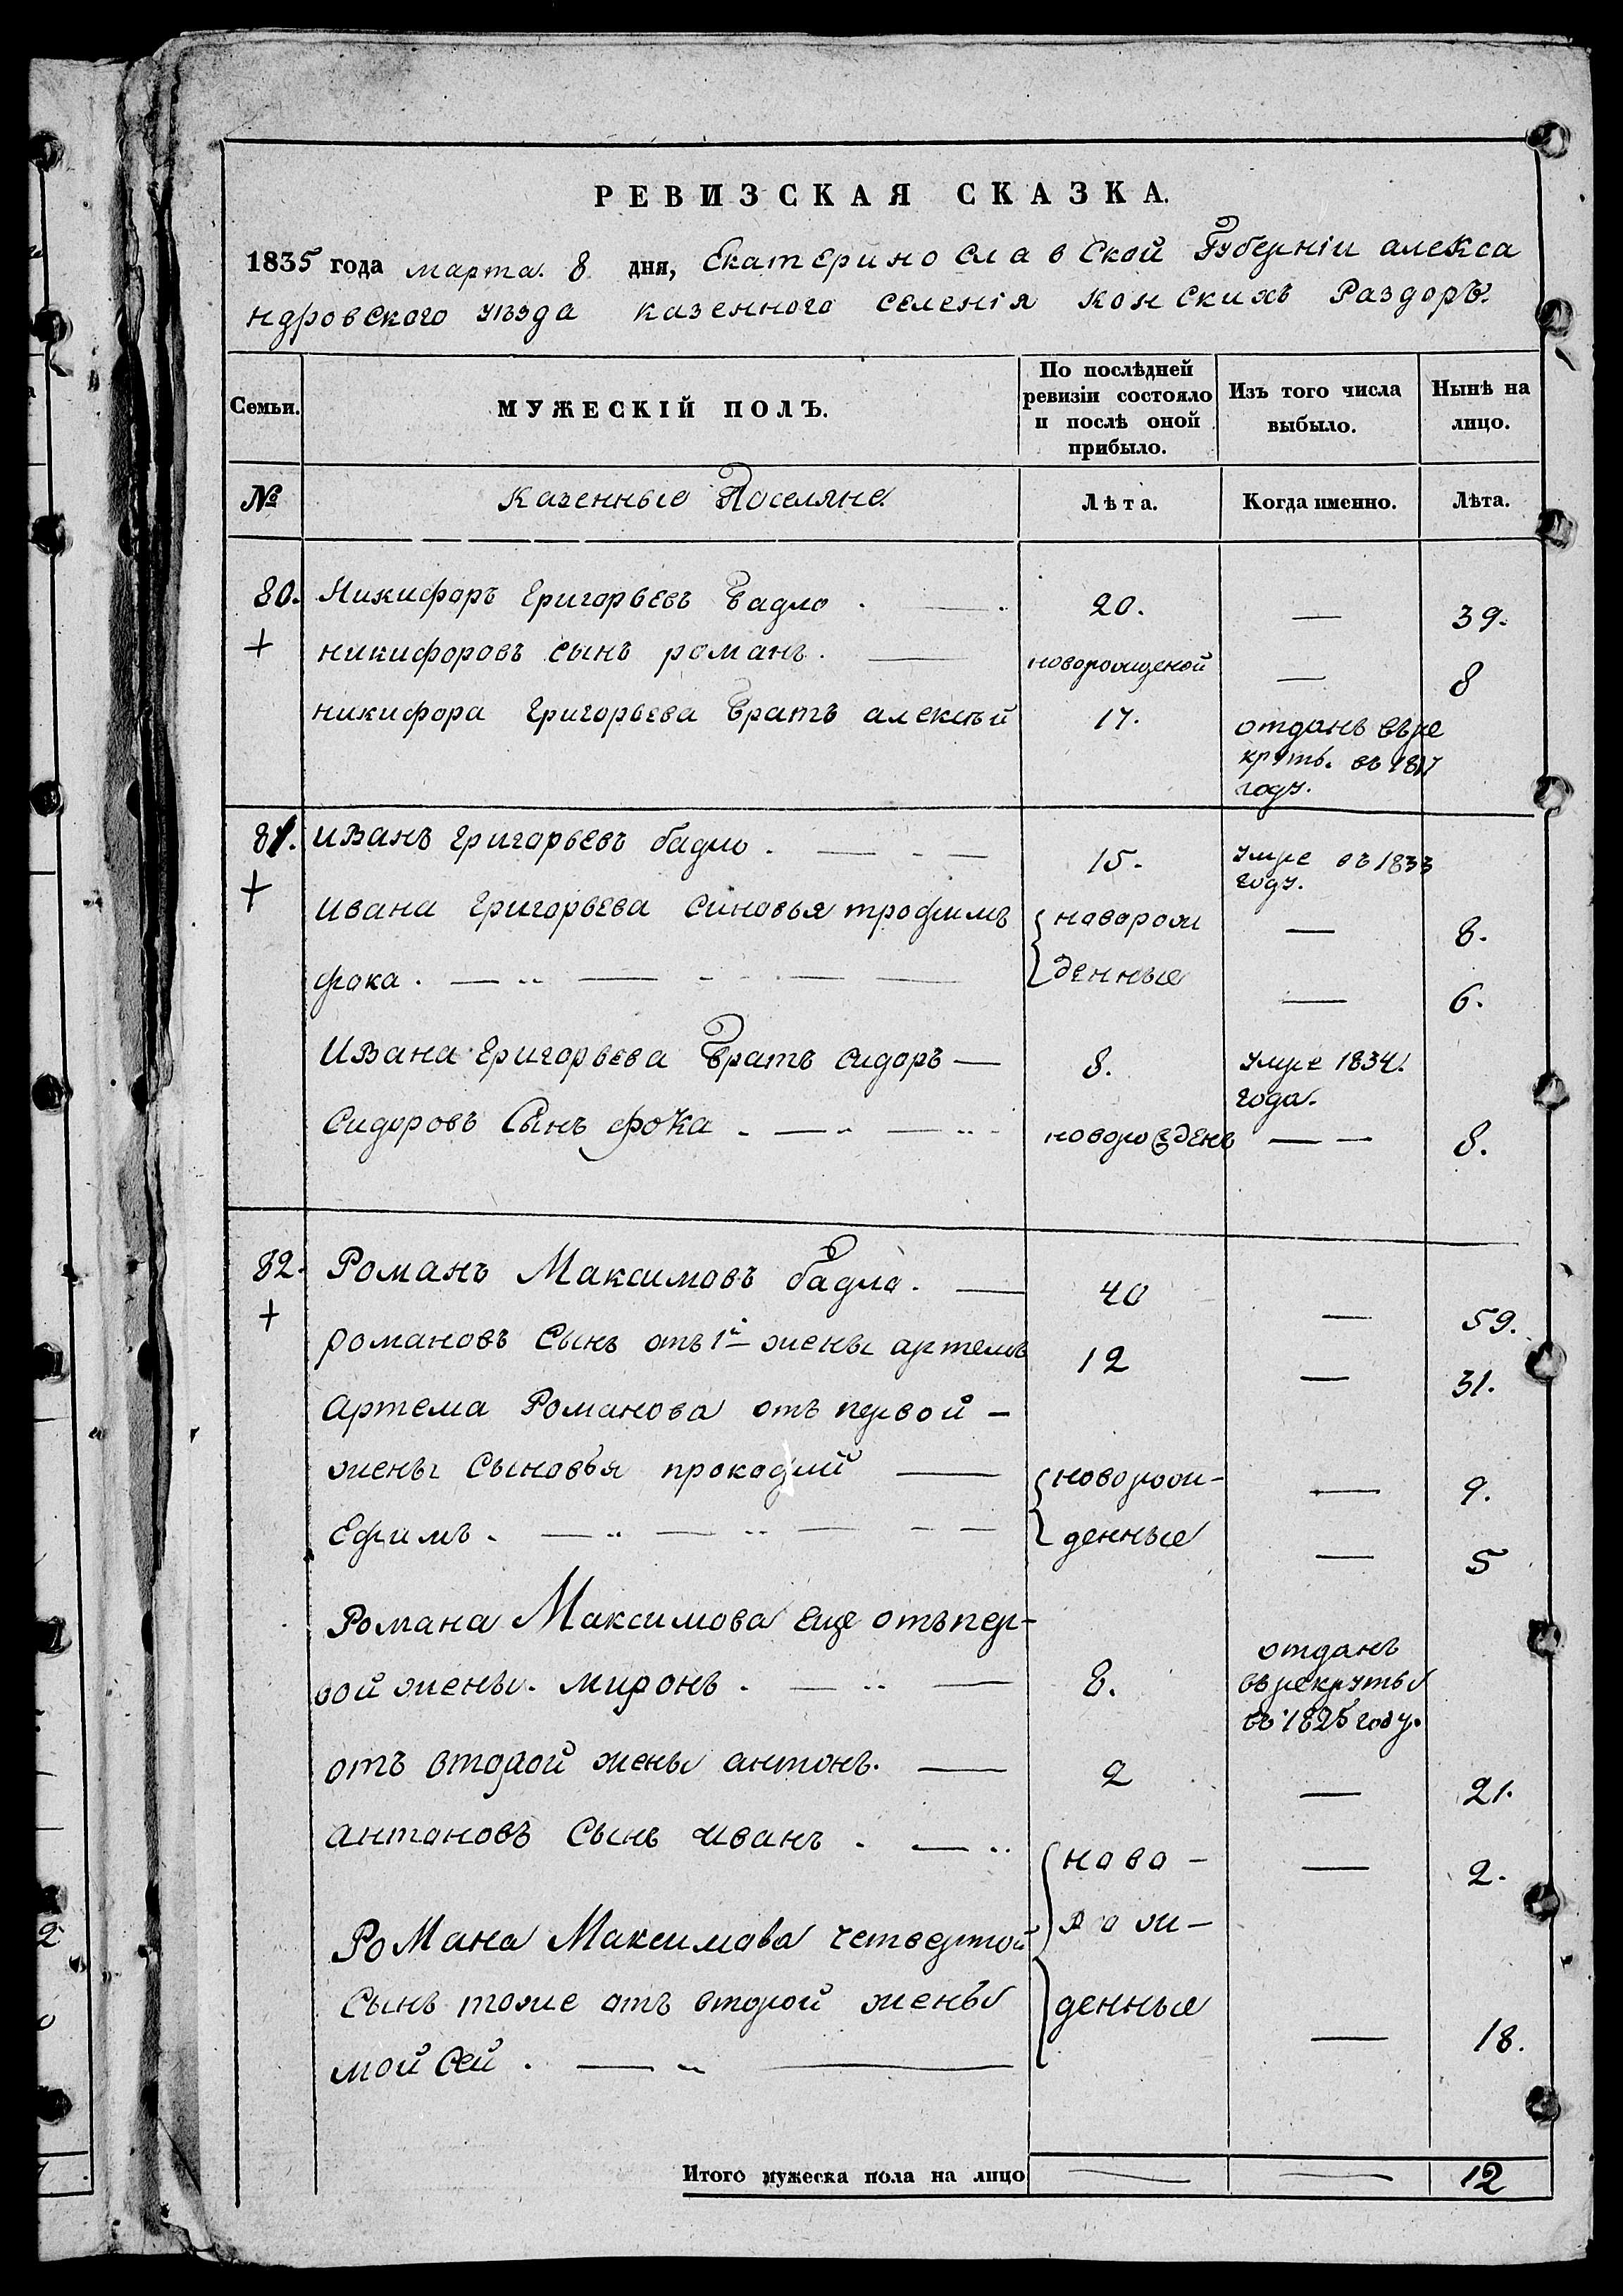 РЕВИЗСКАЯ СКАЗКА.
1835 года марта. 8 дня, Екатеринославской Губерніи алекса
ндровского уѣзда казенного селенія конскихъ Раздоръ.
Семьи. МУЖЕСКІЙ ПОЛЪ. По послѣдней ревизіи состояло и послѣ оной прибыло. Изъ того числа выбыло. Нынѣ на лицо.
№ Казенные Поселяне Лѣта. Когда именно. Лѣта.
80. Никифоръ Григорьевъ Бадло. 20. — 39.
+ никифоровъ сынъ романъ. новорожденой — 8
никифора Григорьева братъ алексѣй 17. отданъ въ ре
круты. въ 1817
году.
81. Иванъ григорьевъ бадло. 15. умре въ 1833
году.
+ Ивана Григорьева синовья трофимъ новорож — 8.
фока. денные — 6.
Ивана Григорьева братъ сидоръ — 8. умре 1834.
года.
Сидоровъ Сынъ фока новорожденъ — — 8.
82. Романъ Максимовъ бадло. 40 — 59.
+ романовъ сынъ отъ 1й жены артемъ 12 — 31.
Артема Романова отъ первой —
жены сыновья прокофий новорож- — 9.
Ефимъ. денные — 5
Романа Максимова еще отъ пер-
вой жены. миронъ. 8. отданъ
въ рекруты
въ 1825 году.
отъ второй жены антонъ. 2 — 21.
антоновъ сынъ иванъ. ново- — 2.
рож-
Романа Максимова четвертой
сынъ тоже отъ второй жены денные
мойсей. — 18.
Итого мужеска пола на лицо — — 12